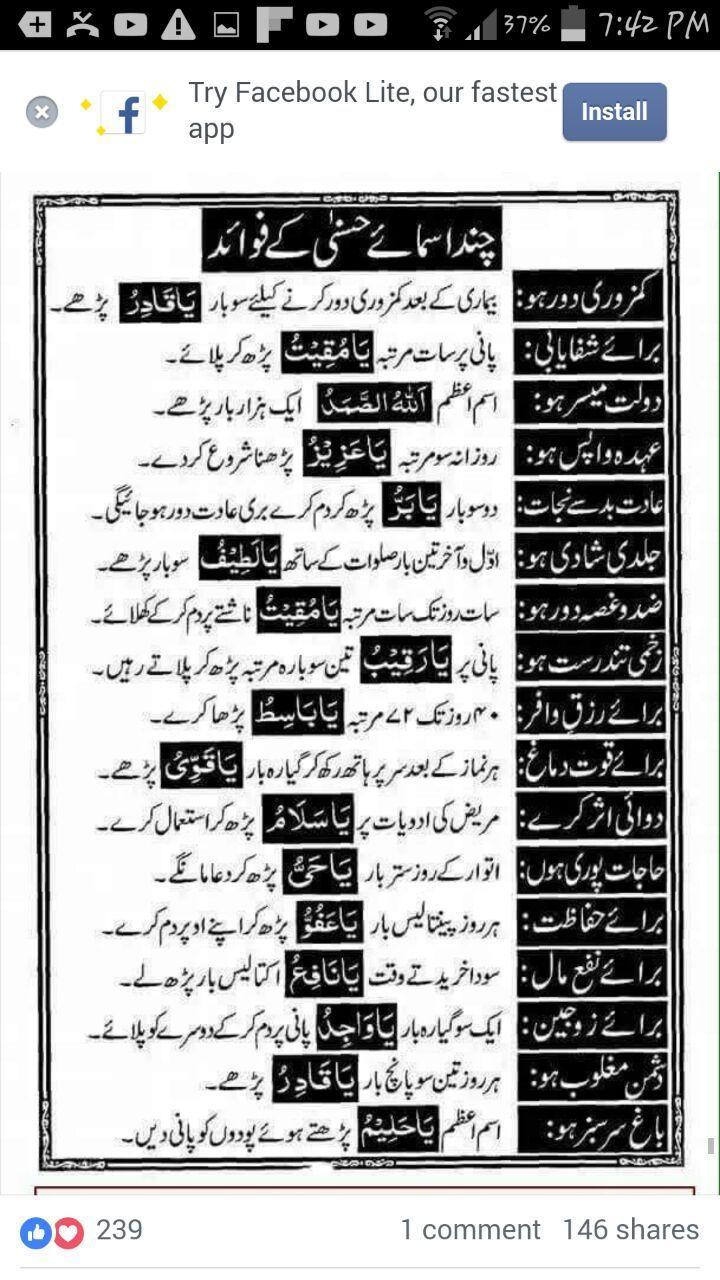 37% 7:42 PM
Try Facebook Lite, our fastest app
Install
چند اسمائے حسنیٰ کے فوائد
کمزوری دور ہو: بیماری کے بعد کمزوری دور کرنے کیلئے سو بار يَا قَادِرُ پڑھے۔
برائے شفایابی: پانی پر سات مرتبہ يَا مُقِيْتُ پڑھ کر پلائے۔
دولت میسر ہو: اسم اعظم اَللّٰهُ الصَّمَدُ ایک ہزار بار پڑھے۔
عہدہ واپس ہو: روزانہ سو مرتبہ يَا عَزِيْزُ پڑھنا شروع کردے۔
عادت بد سے نجات: دو سو بار يَا بَرُّ پڑھ کر دم کرے بری عادت دور ہو جائیگی۔
جلدی شادی ہو: اوّل و آخر تین بار صلوات کے ساتھ يَا لَطِيْفُ سو بار پڑھے۔
ضد و غصہ دور ہو: سات روز تک سات مرتبہ يَا مُقِيْتُ ناشتے پر دم کر کے کھلائے۔
زخمی تندرست ہو: پانی پر يَا رَقِيْبُ تین سو بارہ مرتبہ پڑھ کر پلاتے رہیں۔
برائے رزق وافر: ۴۰ روز تک ۷۲ مرتبہ يَا بَاسِطُ پڑھا کرے۔
برائے قوت دماغ: ہر نماز کے بعد سر پر ہاتھ رکھ کر گیارہ بار يَا قَوِّیُ پڑھے۔
دوائی اثر کرے: مریض کی ادویات پر يَا سَلَامُ پڑھ کر استعمال کرے۔
حاجات پوری ہوں: اتوار کے روز ستر بار يَا حَیُّ پڑھ کر دعا مانگے۔
برائے حفاظت: ہر روز پینتالیس بار يَا عَفُوُّ پڑھ کر اپنے اوپر دم کرے۔
برائے نفع مال: سودا خریدتے وقت يَا نَافِعُ اکتالیس بار پڑھ لے۔
برائے زوجین: ایک سو گیارہ بار يَا وَاجِدُ پانی پر دم کر کے دوسرے کو پلائے۔
دشمن مغلوب ہو: ہر روز تین سو پانچ بار يَا قَادِرُ پڑھے۔
باغ سرسبز ہو: اسم اعظم يَا حَلِيْمُ پڑھتے ہوئے پودوں کو پانی دیں۔
239 1 comment 146 shares